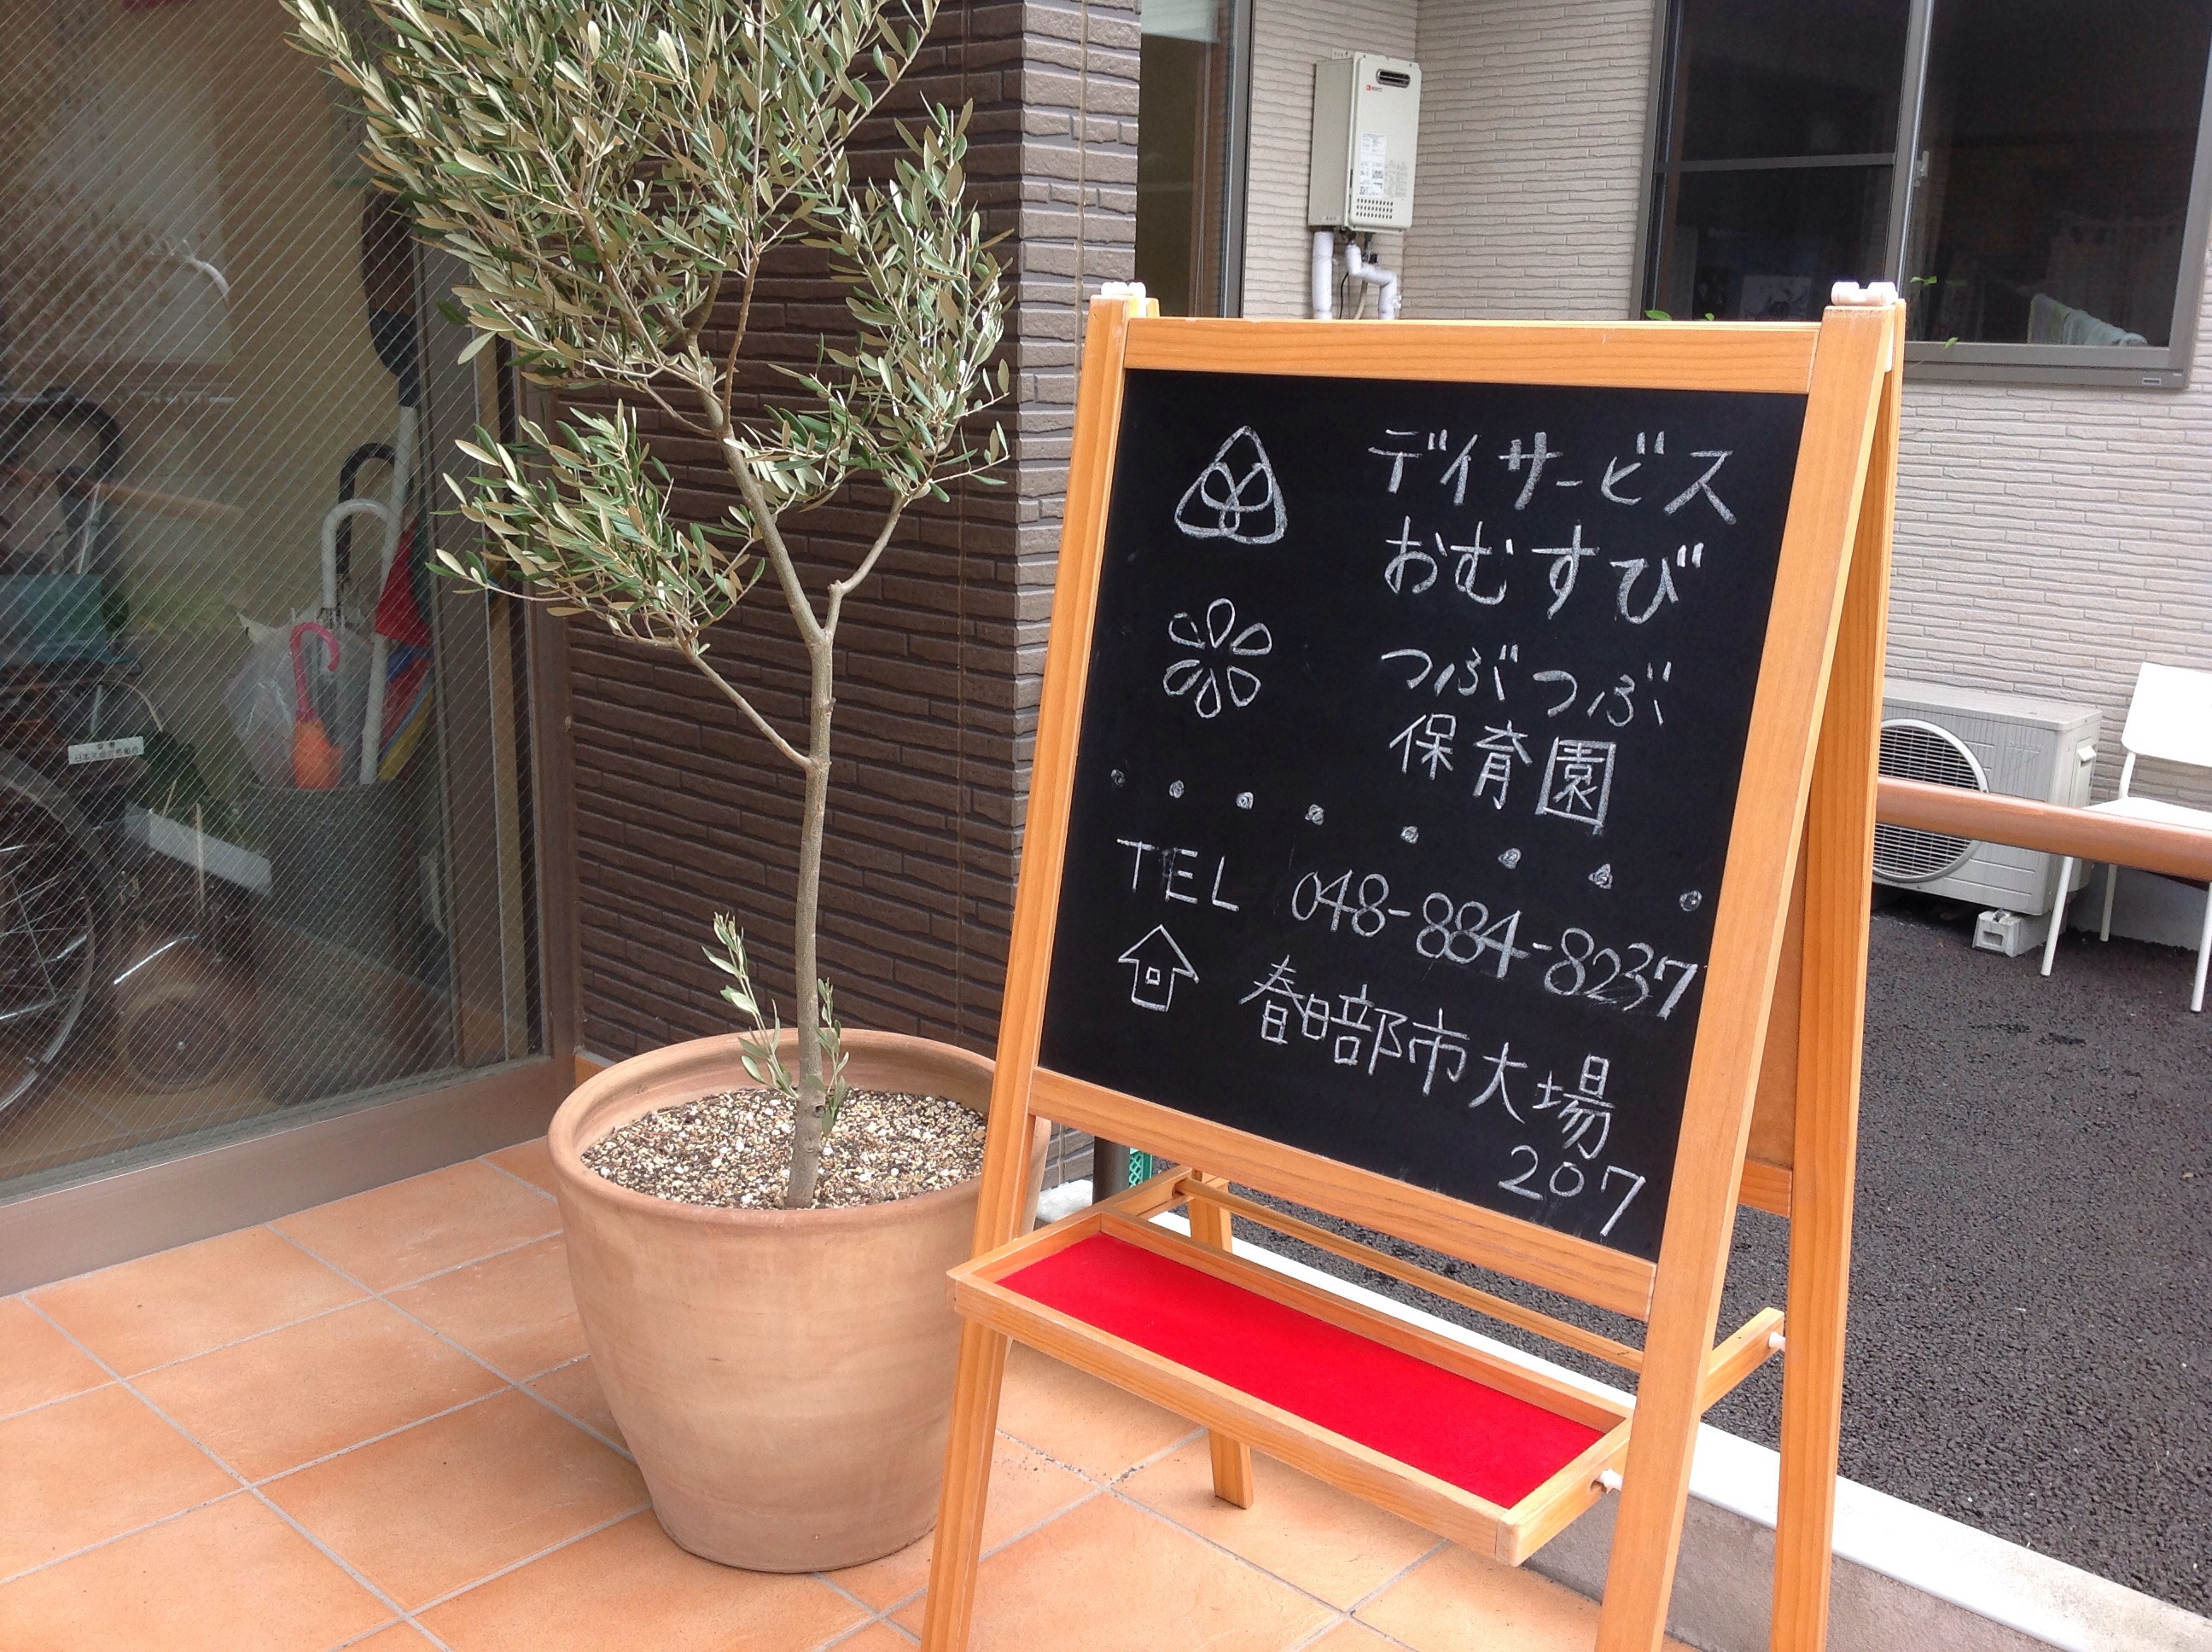 デイサービス
おむすび
つぶつぶ
保育園
TEL 048-884-8237
春日部市大場
207